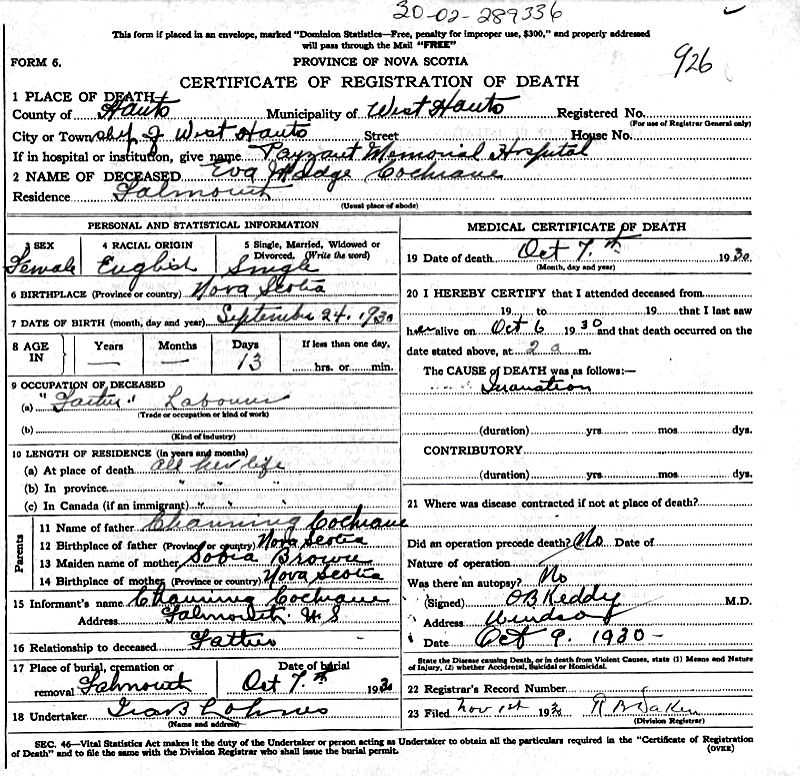 20-02-289336
This form if placed in an envelope, marked "Dominion Statistics—Free, penalty for improper use, $300," and properly addressed
will pass through the Mail "FREE"
926
FORM 6.
PROVINCE OF NOVA SCOTIA
CERTIFICATE OF REGISTRATION OF DEATH
1 PLACE OF DEATH
County of Hants Municipality of West Hants Registered No.
(For use of Registrar General only)
City or Township of West Hants Street House No.
If in hospital or institution, give name Payzant Memorial Hospital
2 NAME OF DECEASED Eva Madge Cochrane
Residence Falmouth
(Usual place of abode)
PERSONAL AND STATISTICAL INFORMATION
3 SEX 4 RACIAL ORIGIN 5 Single, Married, Widowed or
Divorced. (Write the word)
Female English Single
6 BIRTHPLACE (Province or country) Nova Scotia
7 DATE OF BIRTH (month, day and year) September 24. 1930
8 AGE IN Years Months Days If less than one day,
— — 13 hrs. or min.
9 OCCUPATION OF DECEASED
(a) "Father" Labourer
(Trade or occupation or kind of work)
(b)
(Kind of industry)
10 LENGTH OF RESIDENCE (in years and months)
(a) At place of death all her life
(b) In province " " "
(c) In Canada (if an immigrant) " "
Parents
11 Name of father Channing Cochrane
12 Birthplace of father (Province or country) Nova Scotia
13 Maiden name of mother Sobia Brown
14 Birthplace of mother (Province or country) Nova Scotia
15 Informant's name Channing Cochrane
Address Falmouth N S
16 Relationship to deceased Father
17 Place of burial, cremation or Date of burial
removal Falmouth Oct 7.th 1930
18 Undertaker
(Name and address)
MEDICAL CERTIFICATE OF DEATH
19 Date of death Oct 7.th 1930
(Month, day and year)
20 I HEREBY CERTIFY that I attended deceased from
19 to 19 that I last saw
her alive on Oct 6 1930 and that death occurred on the
date stated above, at 2 a m.
The CAUSE of DEATH was as follows:—
Inanation
(duration) yrs mos dys.
CONTRIBUTORY
(duration) yrs. mos dys.
21 Where was disease contracted if not at place of death?
Did an operation precede death? No Date of
Nature of operation
Was there an autopsy? No
(Signed) O B Keddy M.D.
Address Windsor
Date Oct 9. 1930 -
State the Disease causing Death, or in death from Violent Causes, state (1) Means and Nature
of Injury, (2) whether Accidental, Suicidal or Homicidal.
22 Registrar's Record Number
23 Filed Nov 1st 1930
(Division Registrar)
SEC. 46—Vital Statistics Act makes it the duty of the Undertaker or person acting as Undertaker to obtain all the particulars required in the "Certificate of Registration
of Death" and to file the same with the Division Registrar who shall issue the burial permit.
(OVER)